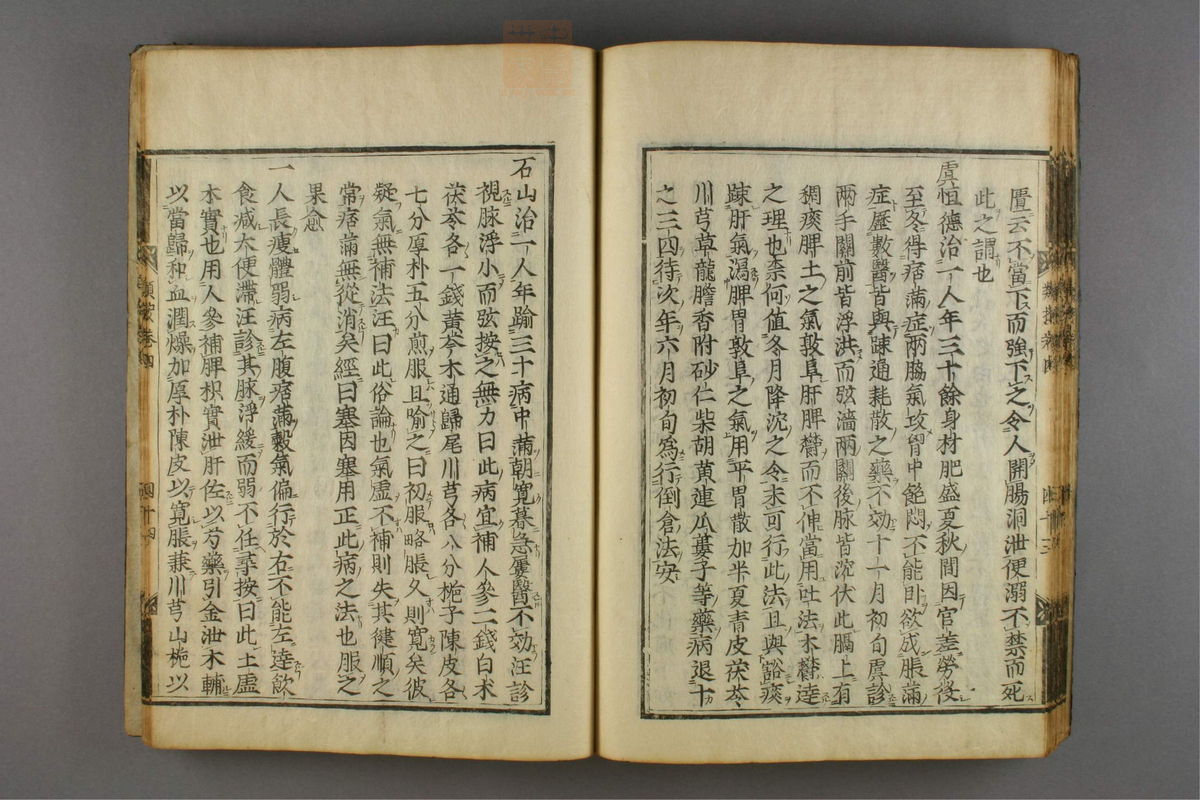 曰云不當下而強下之令人開腸洞泄便溺不禁而死
此之謂也
虞恒德治一人年三十餘身材肥盛夏秋間因官差勞役
至冬得痞滿症兩脇氣攻胷中飽悶不能臥欲成脹滿
症歷數醫皆與踈通耗散之藥不効十一月初旬虞診
兩手關前皆浮洪而弦濇兩關後脉皆沉伏此膈上有
稠痰脾土之氣敦阜肝脾鬱而不伸當用吐法木鬱達
之理也柰何值冬月降沉之令未可行此法且與豁痰
踈肝氣瀉脾胃敦阜之氣用平胃散加半夏青皮茯苓
川芎草龍膽香附砂仁柴胡黄連瓜蔞子等藥病退十
之三四待次年六月初旬爲行倒倉法安
石山治一人年踰三十病中滿朝寛暮急屢醫不効汪診
視脉浮小而弦按之無力曰此病宜補人參二錢白术
茯苓各一錢黄芩木通歸尾川芎各八分梔子陳皮各
七分厚朴五分煎服且喻之曰初服略脹久則寛矣彼
疑氣無補法汪曰此俗論也氣虛不補則失其健順之
常痞滿無從消矣經曰塞因塞用正此病之法也服之
果愈
一人長瘦體弱病左腹痞滿穀氣偏行於右不能左達飲
食减大便滯汪診其脉浮緩而弱不任尋按曰此土虛
木實也用人參補脾枳實泄肝佐以芍藥引金泄木輔
以當歸和血潤燥加厚朴陳皮以寛脹兼川芎山梔以
類按卷四
四十四